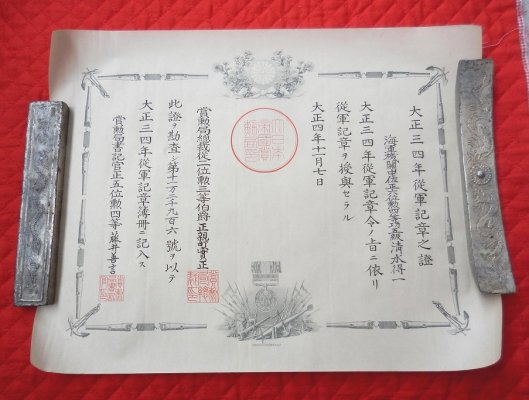 大正三四年從軍記章之證
海軍機關中佐正六位勲四等功五級清水得一
大正三四年從軍記章令ノ旨ニ依リ
從軍記章ヲ授與セラル
大正四年十一月七日
賞勲局總裁從二位勲二等伯爵正親町實正
此證ヲ勘査シ第十一万二千九百六號ヲ以テ
大正三四年從軍記章簿册ニ記入ス
賞勲局書記官正五位勲四等藤井善言